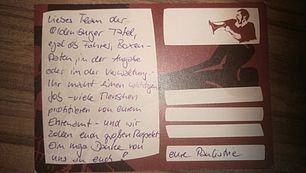 Liebes Team der
Oldenburger Tafel,
egal ob Fahrer, Boxen-
Paten, in der Ausgabe
oder in der Verwaltung -
Ihr macht einen wichtigen
Job - viele Menschen
profitieren von eurem
Ehrenamt - und wir
zollen euch großen Respekt
Ein mega Danke von
uns an euch!
eure